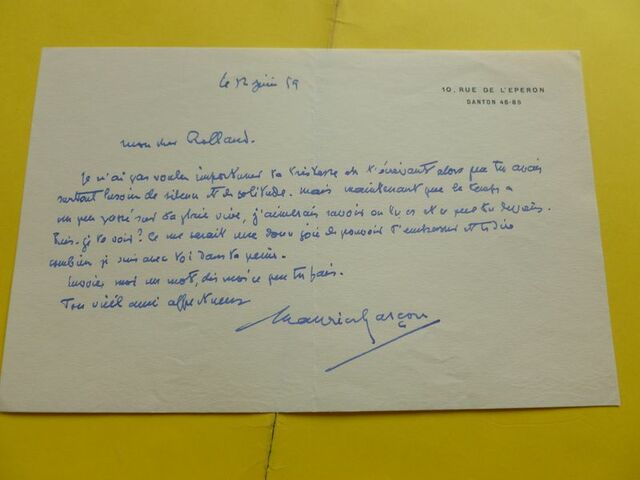 10, RUE DE L'EPERON
DANTON 48-89
le 12 juin 59
mon cher Rolland.
Je n'ai pas voulu importuner ta tristesse en t'écrivant alors que tu avais
surtout besoin de silence et de solitude. mais maintenant que le temps a
un peu passé sur ta plaie vive, j'aimerais savoir où tu es et ce que tu deviens.
Puis-je te voir? Ce me serait une douce joie de pouvoir t'embrasser et te dire
combien je suis avec toi dans ta peine.
Envoies moi un mot, dis moi ce que tu fais.
Ton vieil ami affectueux
Maurice Garçon